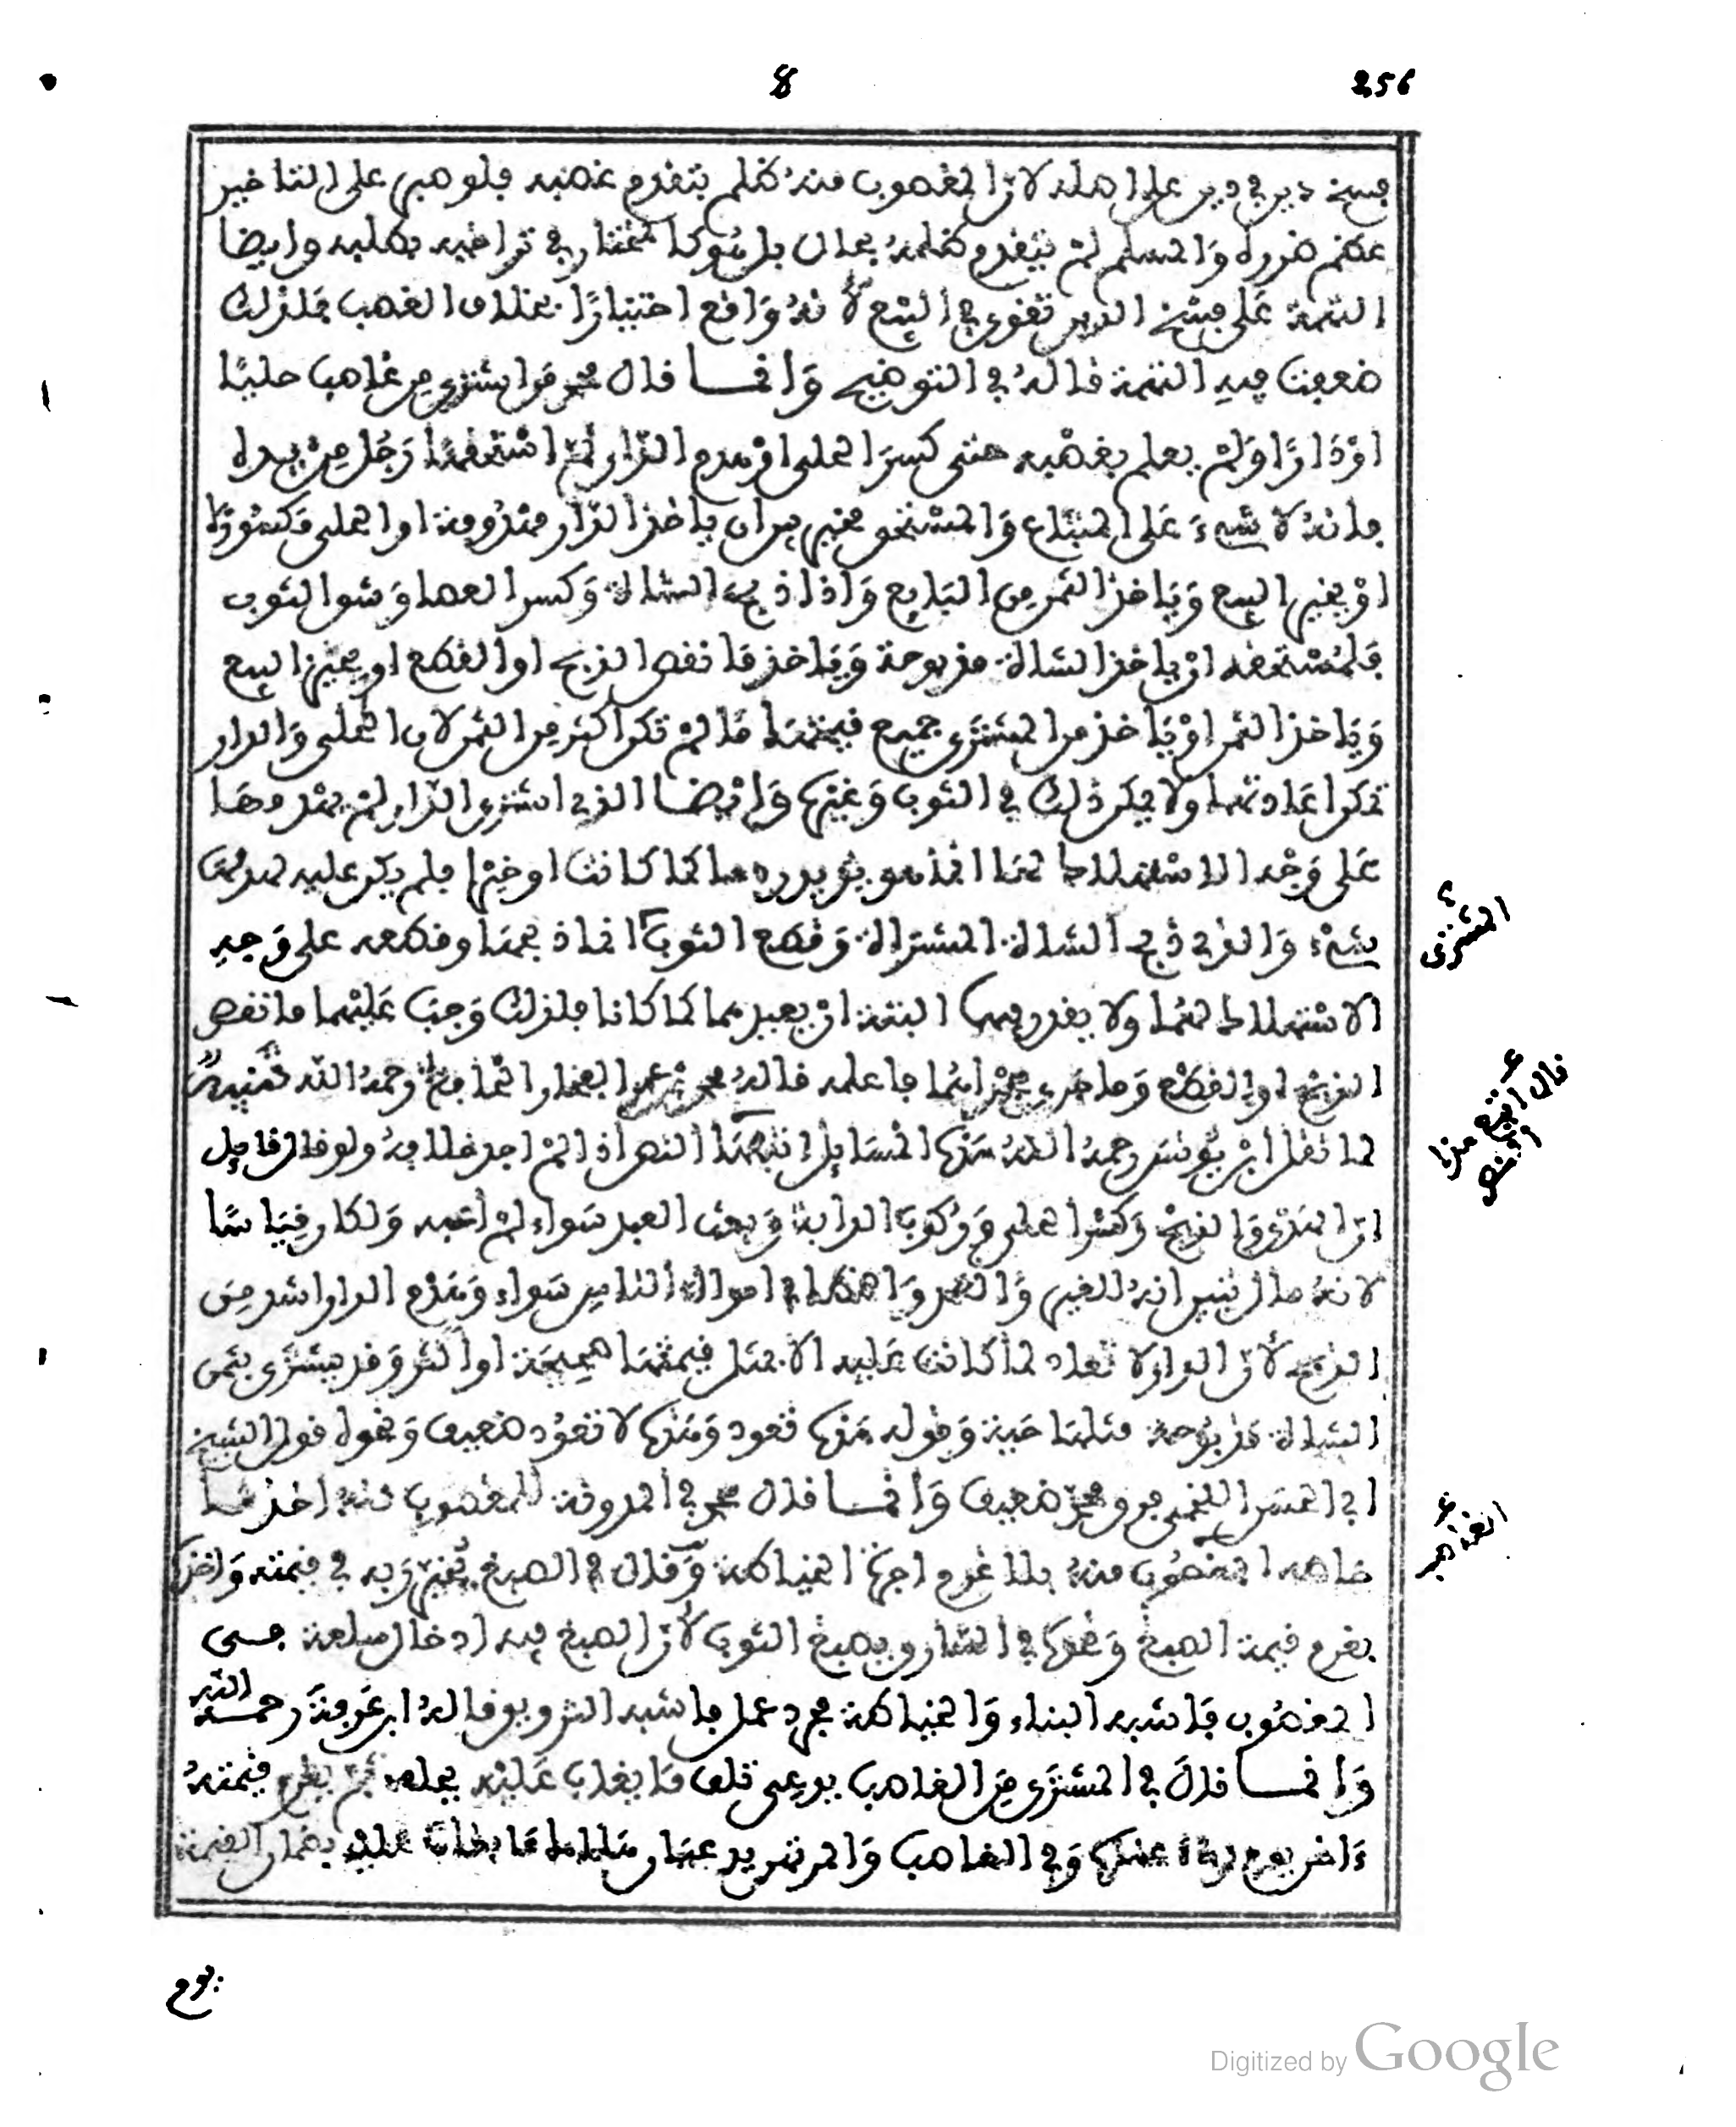 256
8
فسخ دين في دين على اهله لان المغصوب منه ظلم بتقدم غصبه فلو هبى على التاخير
عظم ضرره والمسلم لم يتقدم ظلمه بحال بل هو كالمختار في تراخيه بطلبه وايضا
التهمة على فسخ الدين تقوى في البيع لانه واقع اختيارا بخلاف الغصب فلذلك
ضعفت فيه التهمة قاله في التوضيح وانما قال محمد من اشترى من غاصب حليا
او دارا ولم يعلم بغصبه حتى كسر الحلى او هدم الدار ثم استحقها رجل من يده
فانه لا شيء على المبتاع والمستحق مخير بين ان ياخذ الدار مهدومة او الحلى مكسورا
او يجيز البيع وياخذ الثمن من البايع واذا ذبح الشاة وكسر العصا وشق الثوب
فلمستحقه ان ياخذ الشاة مذبوحة وياخذ ما نقص الذبح او القطع او يجيز البيع
وياخذ الثمن او ياخذ من المشترى جميع قيمتها ما لم تكن اكثر من الثمن لان الحلى والدار
تمكن اعادتهما ولا يمكن ذلك في الثوب وغيرها وايضا الذي اشترى الدار لم يهدمها
على وجه الاستهلاك لها انما هو يريد ردها كما كانت او خيرا فلم يكن عليه لهدمها
شيء والذي ذبح الشاة المشتراة وقطع الثوب انما ذبحها وقطعه على وجه
الاستهلاك لهما ولا يقدر فيهما البتة ان يعيدهما كما كانا فلذلك وجب عليهما ما نقص
الذبح او القطع وما جرى مجراهما فاعلمه قاله محمد بن عبد الغفار الحافظ رحمه الله تنبيه
لما نقل ابن يونس رحمه الله هذه المسايل اتبعها النص اذ لم اجد خلافه ولو قال قايل
ان الهدم والذبح وكسر الحلى وركوب الدابة وبعث العبد سواء لم اعبه ولكان قياسا
لانه مال تبين انه للغير والعمد والخطا في اموال الناس سواء وهدم الدار اشد من
الذبح لان الدار لا تعاد لما كانت عليه الا بمثل قيمتها صحيحة او اكثر وقد يشترى بثمن
الشاة مذبوحة مثلها حية وقوله هذه تعود وهذه لا تعود ضعيف ونحوه قول الشيخ
ابي الحسن اللخمي فرق محمد ضعيف وانما قال محمد في المدونة للمغصوب منه اخذ ما
خاطه المغصوب منه بلا غرم اجرة الخياطة وقال في الصبغ يخير ربه في قيمته واخذه
يغرم قيمة الصبغ ونحوه في الشارق يصبغ الثوب لان الصبغ فيه ادخال سلعة في
المغصوب فاشبه البناء والخياطة مجرد عمل فاشبه التزويق قاله ابن عرفة رحمه الله
وانما قال في المشترى من الغاصب يدعى تلف ما يغاب عليه يحلف ثم يغرم قيمته
ءاخر يوم رءاه عنده وفي الغاصب والمرتهن يدعيان هلاك ما يغاب عليه يضمنان القيمة
المشترى
الغاصب
يوم
Digitized by Google